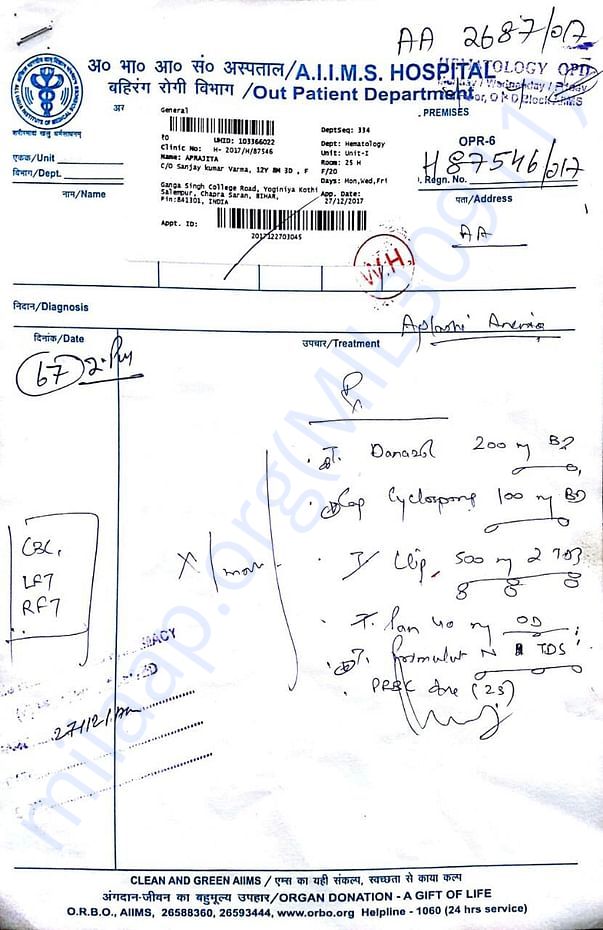 AA 2687/017
अ० भा० आ० सं० अस्पताल/A.I.I.M.S. HOSPITAL
HEMATOLOGY OPD
बहिरंग रोगी विभाग /Out Patient Department
PREMISES
शरीरमाद्यं खलु धर्मसाधनम्
General
to
UHID: 103366022
Clinic No: H- 2017/H/87546
Name: APRAJITA
C/O Sanjay kumar Varma, 12Y 8M 3D , F
Ganga Singh College Road, Yoginiya Kothi
Salempur, Chapra Saran, BIHAR,
Pin:841301, INDIA
Appt. ID:
2017122703045
DeptSeq: 334
Dept: Hematology
Unit: Unit-I
Room: 25 H
F/20
Days: Mon,Wed,Fri
App. Date:
27/12/2017
OPR-6
. Regn. No. H87546/017
एकक/Unit
विभाग/Dept.
नाम/Name
पता/Address
AA
W.H.
निदान/Diagnosis
दिनांक/Date
उपचार/Treatment
67
Rx
T. Danazol 200 mg BD
Cap Cyclosporine 100 mg BD
500 mg 2 TDS
T. Pan 40 mg OD
N TDS
PRBC
CBC,
LFT
RFT
milaap.org(MIL309117)
CLEAN AND GREEN AIIMS / एम्स का यही संकल्प, स्वच्छता से काया कल्प
अंगदान-जीवन का बहुमूल्य उपहार/ORGAN DONATION - A GIFT OF LIFE
O.R.B.O., AIIMS, 26588360, 26593444, www.orbo.org Helpline - 1060 (24 hrs service)